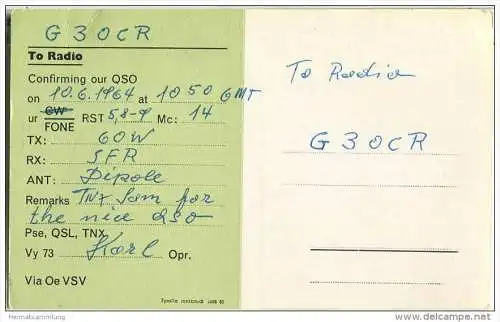 G3OCR
To Radio
Confirming our QSO
on 10.6.1964 at 1050 GMT
ur CW FONE RST 5,8-9 Mc: 14
TX: 60W
RX: SFR
ANT: Dipole
Remarks TNX Sam for
the nice QSO
Pse, QSL, TNX
Vy 73 Karl Opr.
Via Oe VSV
To Radio
G3OCR